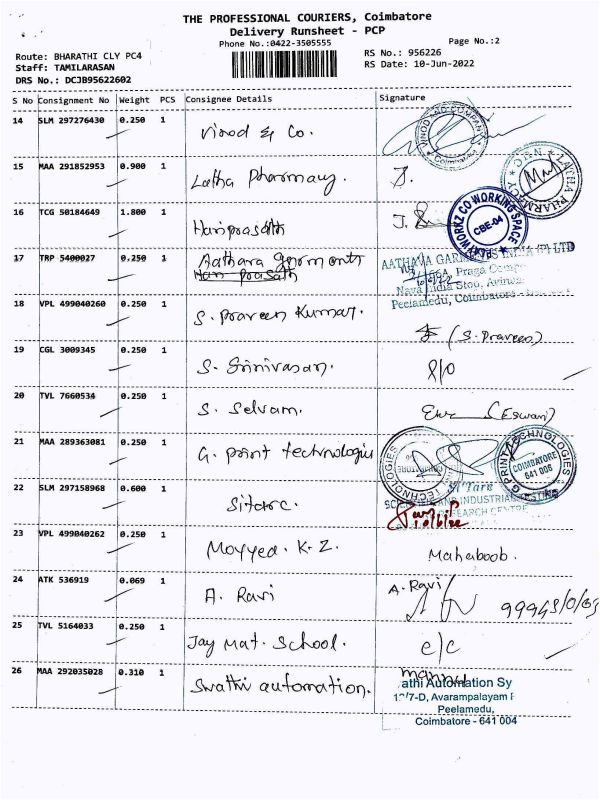 THE PROFESSIONAL COURIERS, Coimbatore
Delivery Runsheet - PCP
Phone No.:0422-3505555
Page No.:2
Route: BHARATHI CLY PC4
RS No.: 956226
Staff: TAMILARASAN
RS Date: 10-Jun-2022
DRS No.: DCJB95622602
S No Consignment No Weight PCS Consignee Details Signature
14 SLM 297276430 0.250 1 Vinod & Co.
VINOD AND COMPANY Coimbatore
15 MAA 291852953 0.900 1 Latha Pharmacy.
LATHA PHARMACY
16 TCG 50184649 1.800 1 Hariprasath
WORKZ CO WORKING SPACE
CBE-04
17 TRP 5400027 0.250 1 Aathava garments
Hari prasath
AATHAVA GARMENTS INDIA (P) LTD
Praga
Nava India Stop,
Peelamedu, Coimbatore
18 VPL 499040260 0.250 1 S. Praveen Kumar.
(S. Praveen)
19 CGL 3009345 0.250 1 S. Srinivasan.
20 TVL 7660534 0.250 1 S. Selvam.
(Eswari)
21 MAA 289363081 0.250 1 G. print technologies
G PRINT TECHNOLOGIES
COIMBATORE
641 006
22 SLM 297158968 0.600 1 Sitarc.
Si'Tarc
AND INDUSTRIAL TESTING
RESEARCH CENTRE
23 VPL 499040262 0.250 1 Moyyed. K. Z. Mahaboob.
24 ATK 536919 0.069 1 A. Ravi A. Ravi
25 TVL 5164033 0.250 1 Jay Mat. School. c/c
26 MAA 292035028 0.310 1 Swathi automation.
athi Automation Sy
7-D, Avarampalayam
Peelamedu,
Coimbatore - 641 004